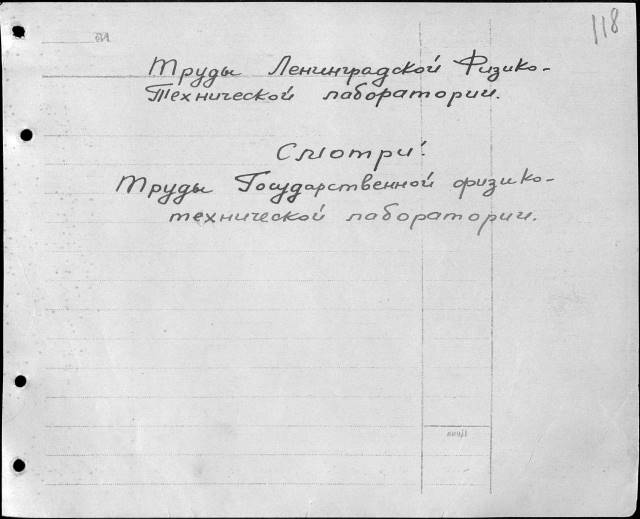 118
Труды Ленинградской Физико-
Технической лаборатории.
Смотри:
Труды Государственной физико-
технической лаборатории.